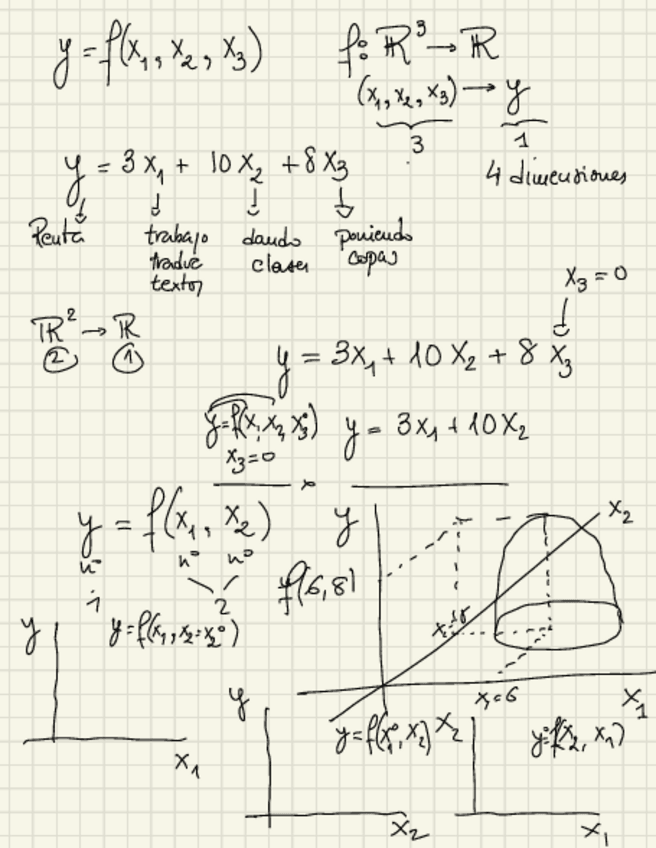 y = f(x₁, x₂, x₃)
f: ℝ³ → ℝ
(x₁, x₂, x₃) → y
3
1
4 dimensiones
y = 3x₁ + 10x₂ + 8x₃
Renta
trabajo
traduc
textos
dando
clases
poniendo
copas
x₃ = 0
ℝ² → ℝ
2 1
y = 3x₁ + 10x₂ + 8x₃
y = f(x₁, x₂, x₃°)
x₃ = 0
y = 3x₁ + 10x₂
y = f(x₁, x₂)
nº nº nº
1
2
y
x₂
f(6,8)
x₁=6
x₁
y
y = f(x₁, x₂=x₂°)
x₁
y
y = f(x₁°, x₂)
x₂
x₂
y°=f(x₂, x₁)
x₁